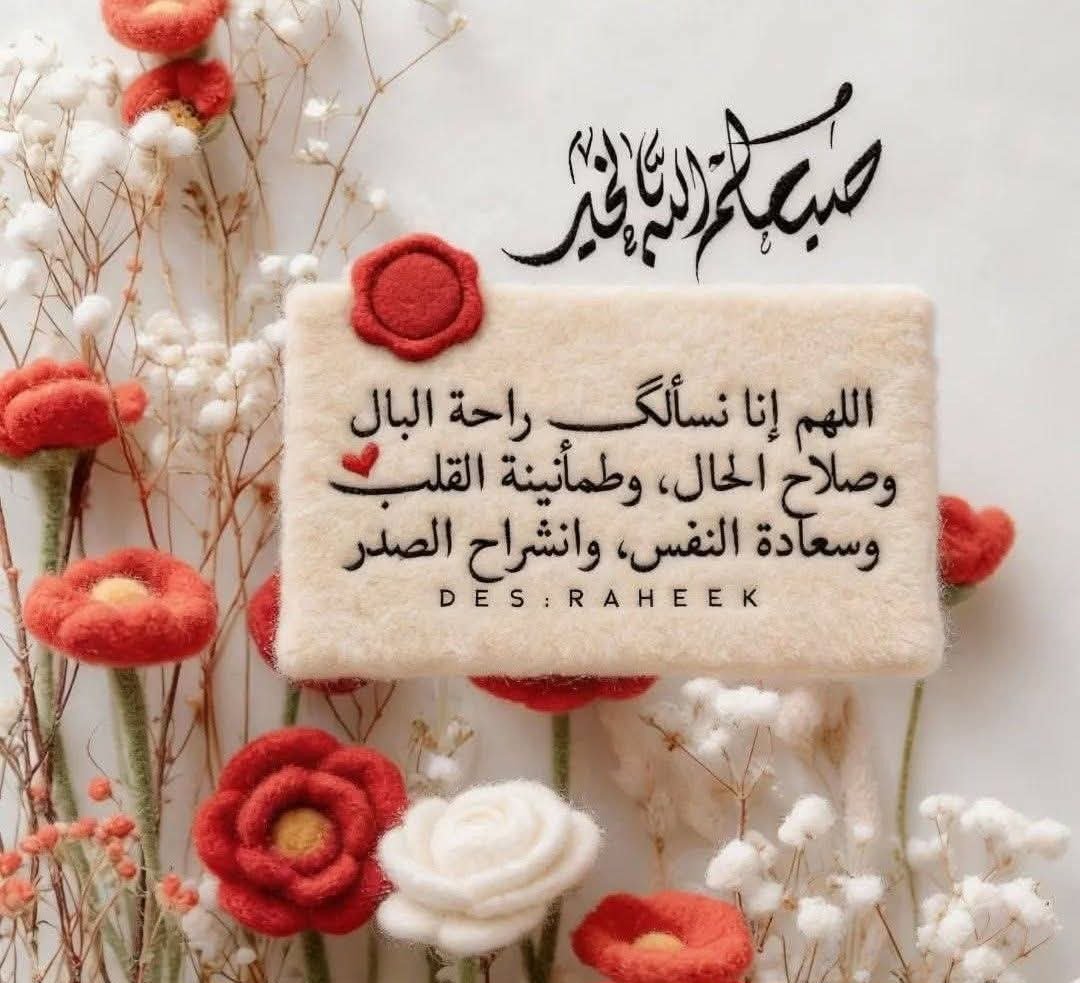 صبحكم الله بالخير
اللهم إنا نسألك راحة البال
وصلاح الحال، وطمأنينة القلب
وسعادة النفس، وانشراح الصدر
DES:RAHEEK